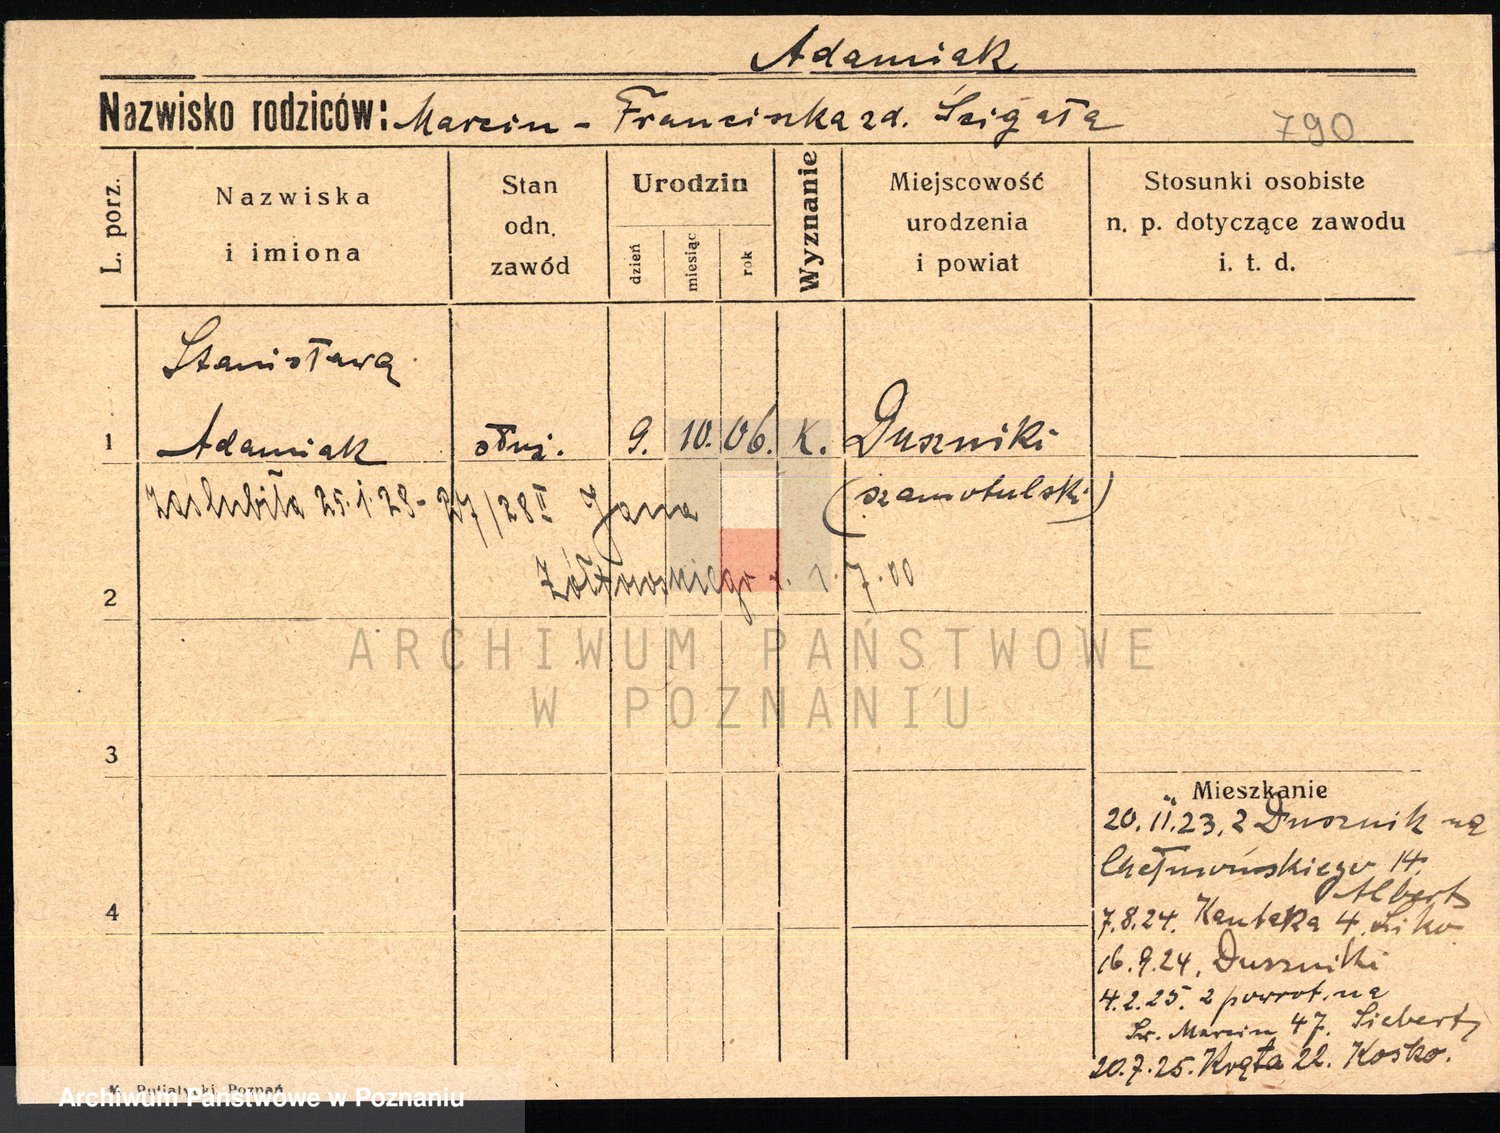 Adamiak
Nazwisko rodziców: Marcin - Franciszka zd. Ścigała 790
L. porz.
Nazwiska
i imiona
Stan
odn.
zawód
Urodzin
dzień
miesiąc
rok
Wyznanie
Miejscowość
urodzenia
i powiat
Stosunki osobiste
n. p. dotyczące zawodu
i. t. d.
Stanisława
1 Adamiak służ. 9. 10. 06. K. Duszniki
zaślubiła 25.1.28 - 27/28 II Jana (szamotulski)
Żółtowskiego 1.7.00
2
3
4
ARCHIWUM PAŃSTWOWE
W POZNANIU
Mieszkanie
20.II.23. z Dusznik na
Chełmońskiego 14.
Alberts
7.8.24. Kantaka 4.
16.9.24. Duszniki
4.2.25. z powrot. na
Św. Marcin 47. Siebert
20.7.25. Kręta 22. Kosko.
Putiatycki, Poznań
Archiwum Państwowe w Poznaniu